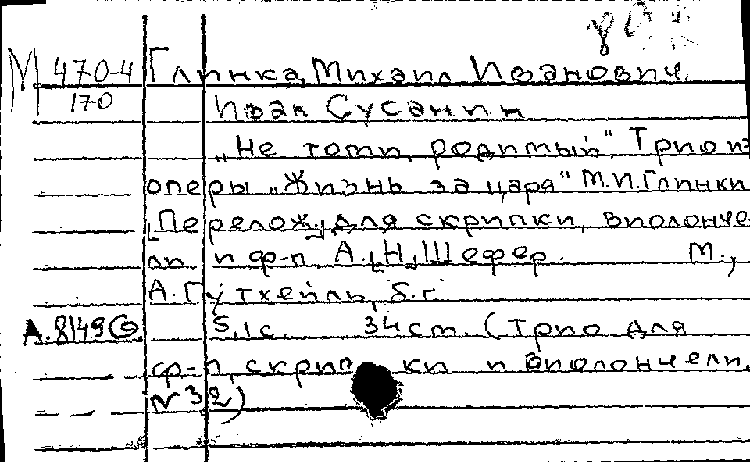 М 470-4 Глинка, Михаил Иванович.
170 Иван Сусанин
„Не томи, родимый". Трио из
оперы „Жизнь за царя" М.И.Глинки
[Перелож. для скрипки, виолонче-
ли и ф-п. А., Н., Шефер. М.,
А. Гутхейль, б.г.
А.8149 5,1с. 34см. (Трио для
ф-п, скрипки и виолончели.
N 32)